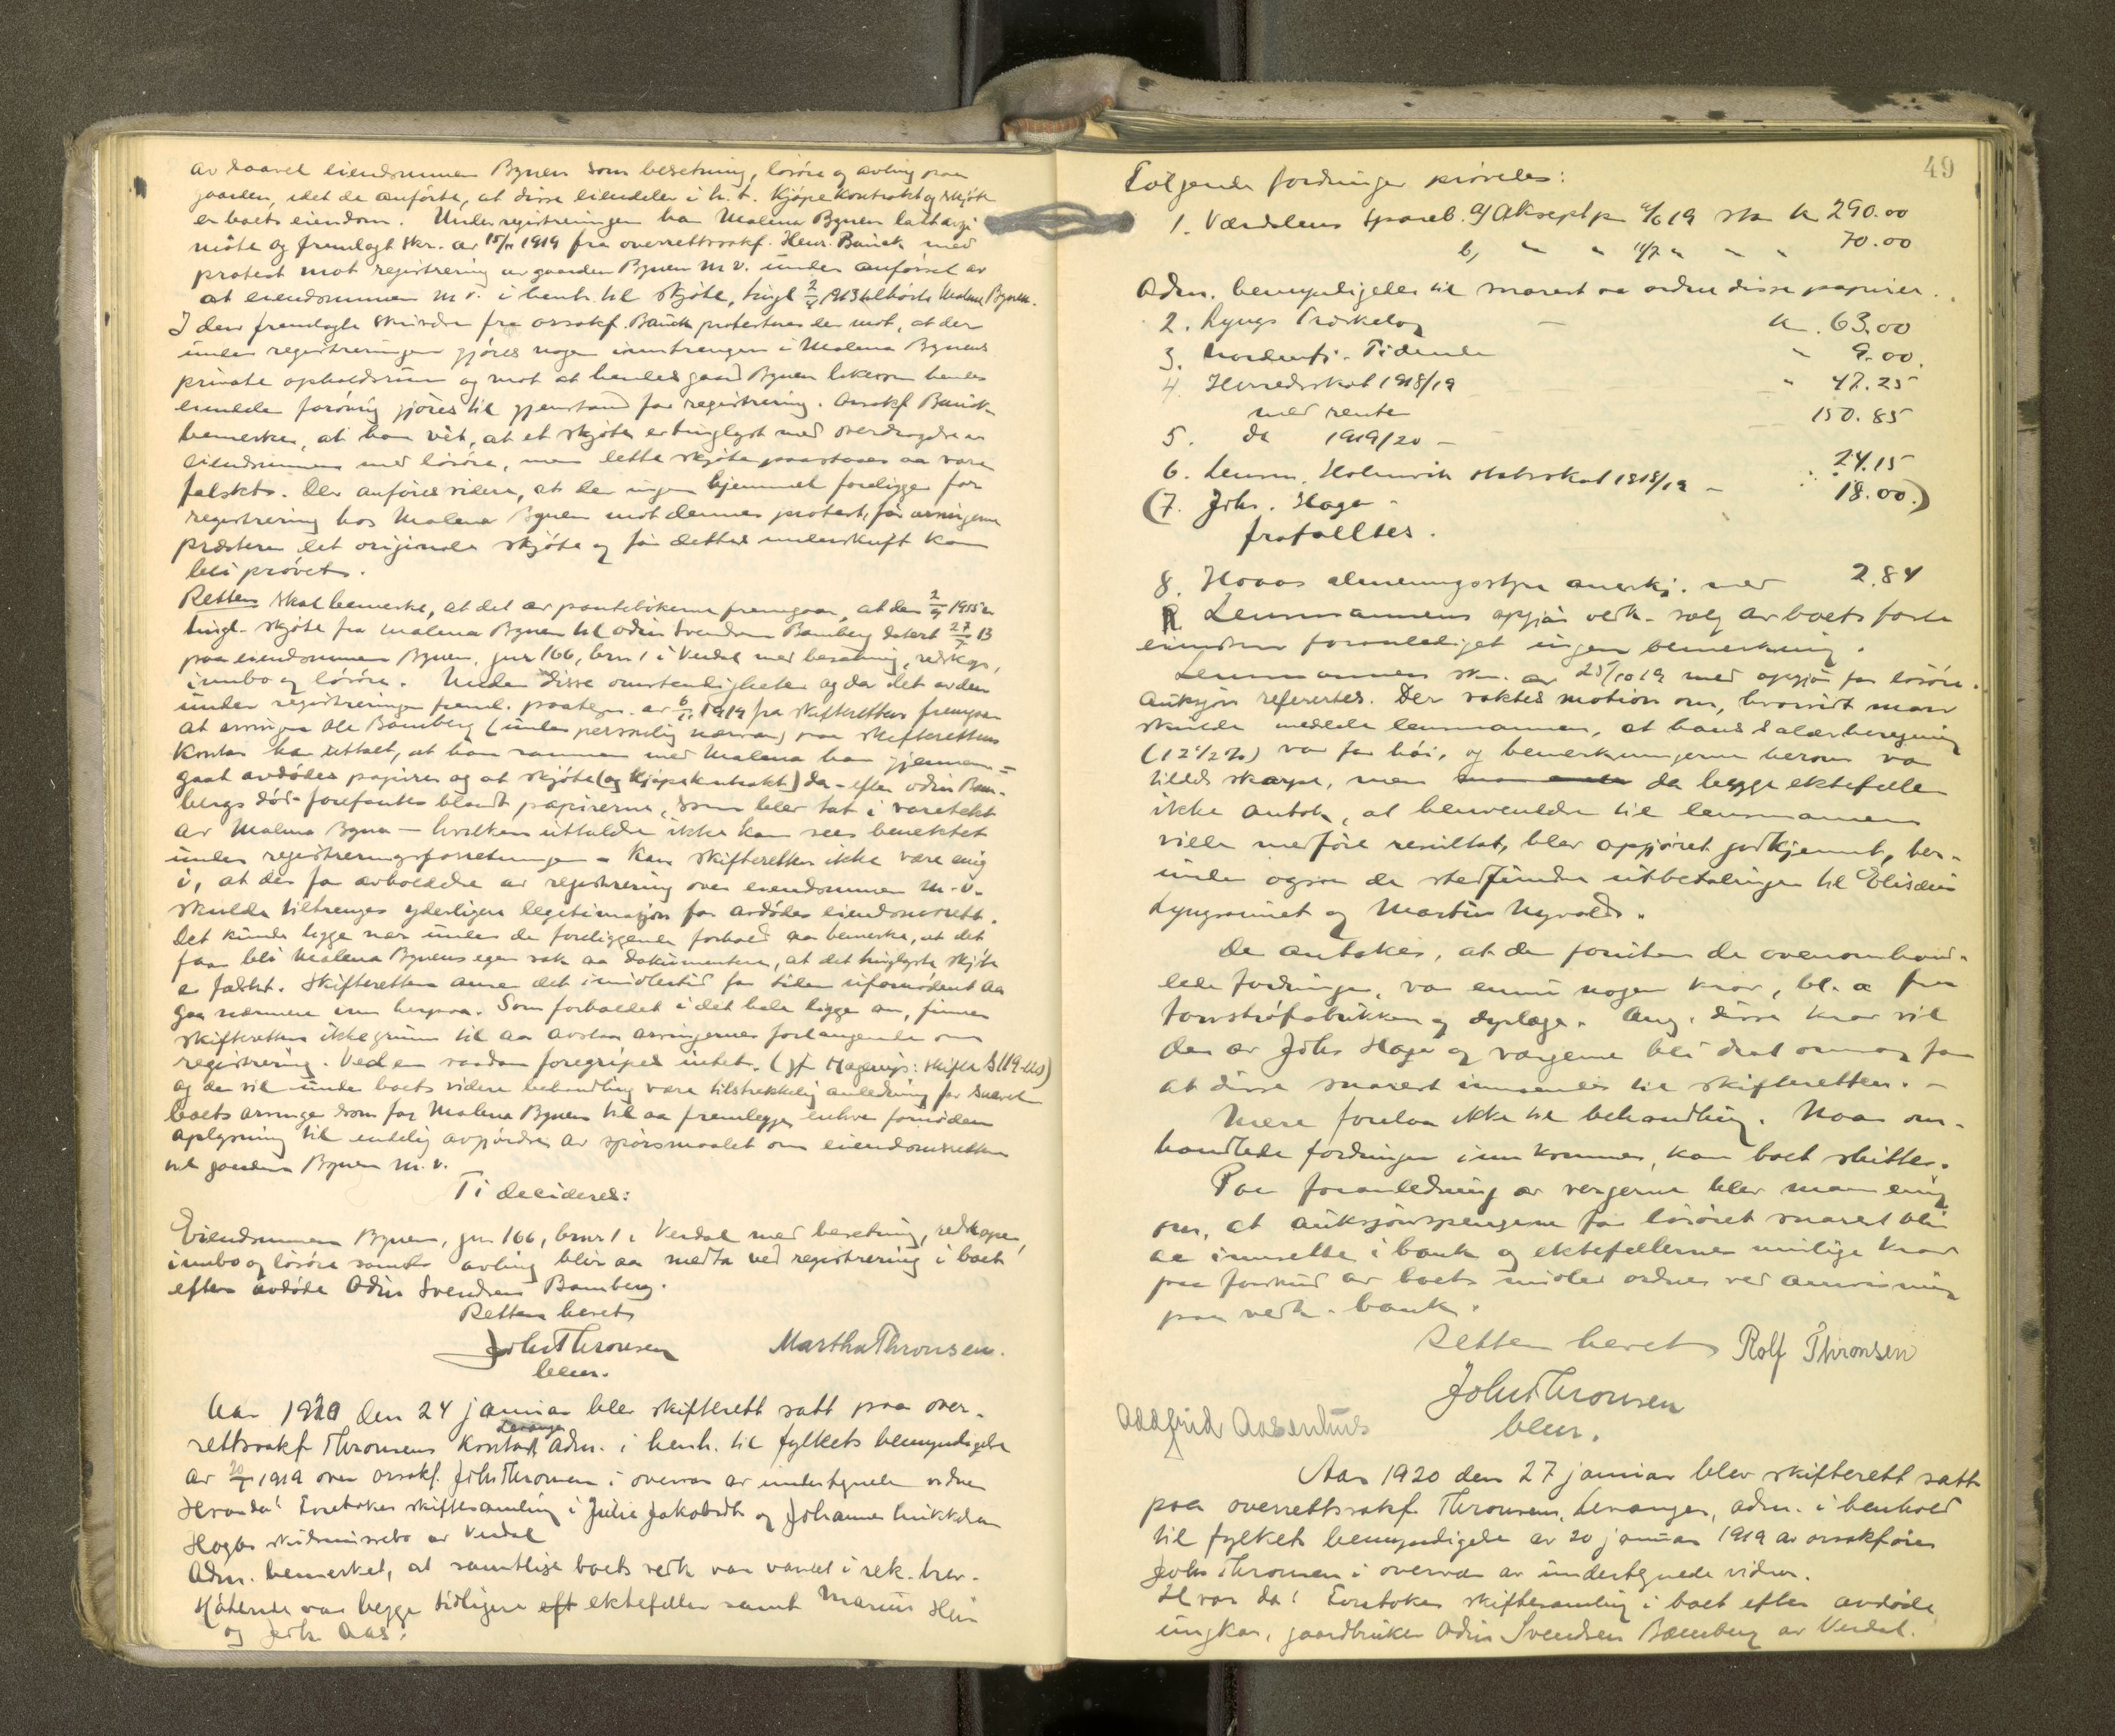 av saavel eiendommen Bynen som besetning, løsøre og avling paa
gaarden, idet de anførte, at disse eiendeler i h. t. kjøpekontrakt og skjøte
er boets eiendom. Under registreringen har Malena Bynen latt
møte og fremlagt skr. av 15/11 1919 fra overrettssakf. Henr. Bauck med
protest mot registrering av gaarden Bynen m v. under anførsel av
at eiendommen m v. i henh. til skjøte, tingl 2/9 1913 tilhører Malena Bynen.
I den fremlagte skrivelse fra orsakf. Bauck protesteres der mot, at der
under registreringen gjøres nogen inntrengen i Malena Bynens
private opholdsrum og mot at hendes gaard Bynen likesom hendes
eiendele forøvrig gjøres til gjenstand for registrering. Orsakf Bauck
bemerker, at han vèt, at et skjøte er tinglyst med overdragelse av
eiendommen med løsøre, men dette skjøte paastaaes aa være
falskt. Der anføres videre, at der ingen hjemmel foreligger for
registrering hos Malena Bynen mot dennes protest, før arvingerne
præsterer det originale skjøte og før dettes underskrift kan
bli prøvet.
Retten skal bemerke, at det av pantebøkerne fremgaar, at den 2/9 1915 er
tingl. skjøte fra Malena Bynen til Odin Svendsen Bamberg datert 27/7 13
paa eiendommen Bynen, gnr 166, brnr 1 i Verdal med besætning, redskap,
innbo og løsøre. Under disse omstendigheter og da det av den
under registreringen freml. paategn. av 6/11 1919 fra skifteretten fremgaar
at arvingen Ole Bamberg (under personlig nærvær) paa skifterettens
kontor har uttalt, at han sammen med Malena har gjennem=
gaat avdødes papirer og at skjøte (og kjøpekontrakt) da - efter Odin Bam-
bergs død - forefantes blandt papirerne, som blev tat i varetekt
av Malena Bynen — hvilken uttalelse ikke kan sees benektet
under registreringsforretningen - kan skifteretten ikke være enig
i, at der for avholdelse av registrering over eiendommen m. v.
skulde tiltrenges yderligere legitimasjon for avdødes eiendomsrett.
Det kunde ligge nær under de foreliggende forhold aa bemerke, at det
faar bli Malena Bynens egen sak aa dokumentere, at det tinglyste skjøte
er falskt. Skifteretten anser det imidlertid for tiden ufornødent aa
gaa nærmere inn herpaa. Som forholdet i det hele ligger an, finner
skifteretten ikke grunn til aa avslaa arvingernes forlangende om
registrering. Ved en saadan foregripes intet. (jf Hagerups: skifte S 119-120)
og der vil under boets videre behandling være tilstrekkelig anledning for saavel
boets arvinger som for Malena Bynen til aa fremlegge enhver fornøden
oplysning til endelig avgjørelse av spørsmaalet om eiendomsretten
til gaarden Bynen m. v.
Ti decideres:
Eiendommen Bynen, gnr 166, brnr 1 i Verdal med besetning, redskaper,
innbo og løsøre samt avling blir aa medta ved registrering i boet
efter avdøde Odin Svendsen Bamberg.
Retten hevet
Johs Thronsen Martha Thronsen.
bem.
Aar 1920 den 24 januar blev skifterett satt paa over-
Levanger
rettssakf Thronsens kontor, adm. i henh. til fylkets bemyndigelse
av 20/1 1919 over orsakf. Johs Thronsen i overvær av undertegnede vidner
Hvor da! Foretokes skiftesamling i Julie Jakobsdtr og Johannes
Hagas skilsmissebo av Verdal
Adm. bemerket, at samtlige boets vedk. var varslet i rek. brev.
Møtende var begge tidligere ektefeller samt Marius Hein
og Joh. Aas.
49
Følgende fordringer prøvedes:
1. Værdalens Spareb. a) Aksept pr 4/6 19 stor kr 290.00
b) " " 11/7 " " " 70.00
Adm. bemyndigedes til snarest aa ordne disse papirer.
2. Lyngs Træskelag — kr. 63.00
3. Nordenfj. Tidende " 9.00.
4. Herredsskat 1918/19 " 47.25
med rente
5. do 1919/20 — 150.85
6. Lensm. Holmvik statsskat 1918/19 — 24.15
(7. Johs. Haga - 18.00.)
frafalltes.
8. Hoaas almeningsstyre anerkj. med 2.84
Lensmannens opgjør vedk. salg av boets faste
eiendom foranlediget ingen bemerkning.
Lensmannens skr. av 25/10 19 med opgjør for løsøre.
auksjon refereres. Der vaktes motion om, hvorvidt man
skulde meddele lensmannen, at hans salærberegning
(12 1/2 %) var for høi, og bemerkningerne herom var
tildels skarpe, men da begge ektefeller
ikke antok, at henvendelse til lensmannen
ville medføre resultat, blev opgjøret godkjennt, her-
under ogsaa de stedfundne utbetalinger til Elisæus
Lyngsaunet og Martin Nyvold.
De antokes, at der foruten de ovenomhand-
lede fordringer, var ennu nogen krav, bl. a fra
torvstrøfabrikken og dyrlæge. Ang. disse krav vil
der av Johs Haga og vergerne bli dradt omsorg for
at disse snarest innsendes til skifteretten. —
Mere forelaa ikke til behandling. Naar om-
handlede fordringer innkommer, kan boet sluttes.
Paa foranledning av vergerne blev man enig
om, at auksjonspengene for løsøret snarest blir
aa innsette i bank og ektefellernes mulige krav
paa forskud av boets midler ordnes ved anvisning
paa vedk. bank.
Retten hevet Rolf Thronsen
Johs Thronsen
bem.
Oddfrid Aasenhus
Aar 1920 den 27 januar blev skifterett satt
paa overrettssakf. Thronsens, Levanger, adm. i henhold
til fylkets bemyndigelse av 20 januar 1919 av orsakfører
Johs Thronsen i overvær av undertegnede vidner.
Hvor da! Foretokes skiftesamling i boet efter avdøde
ungkar, gaardbruker Odin Svendsen Bamberg av Verdal.